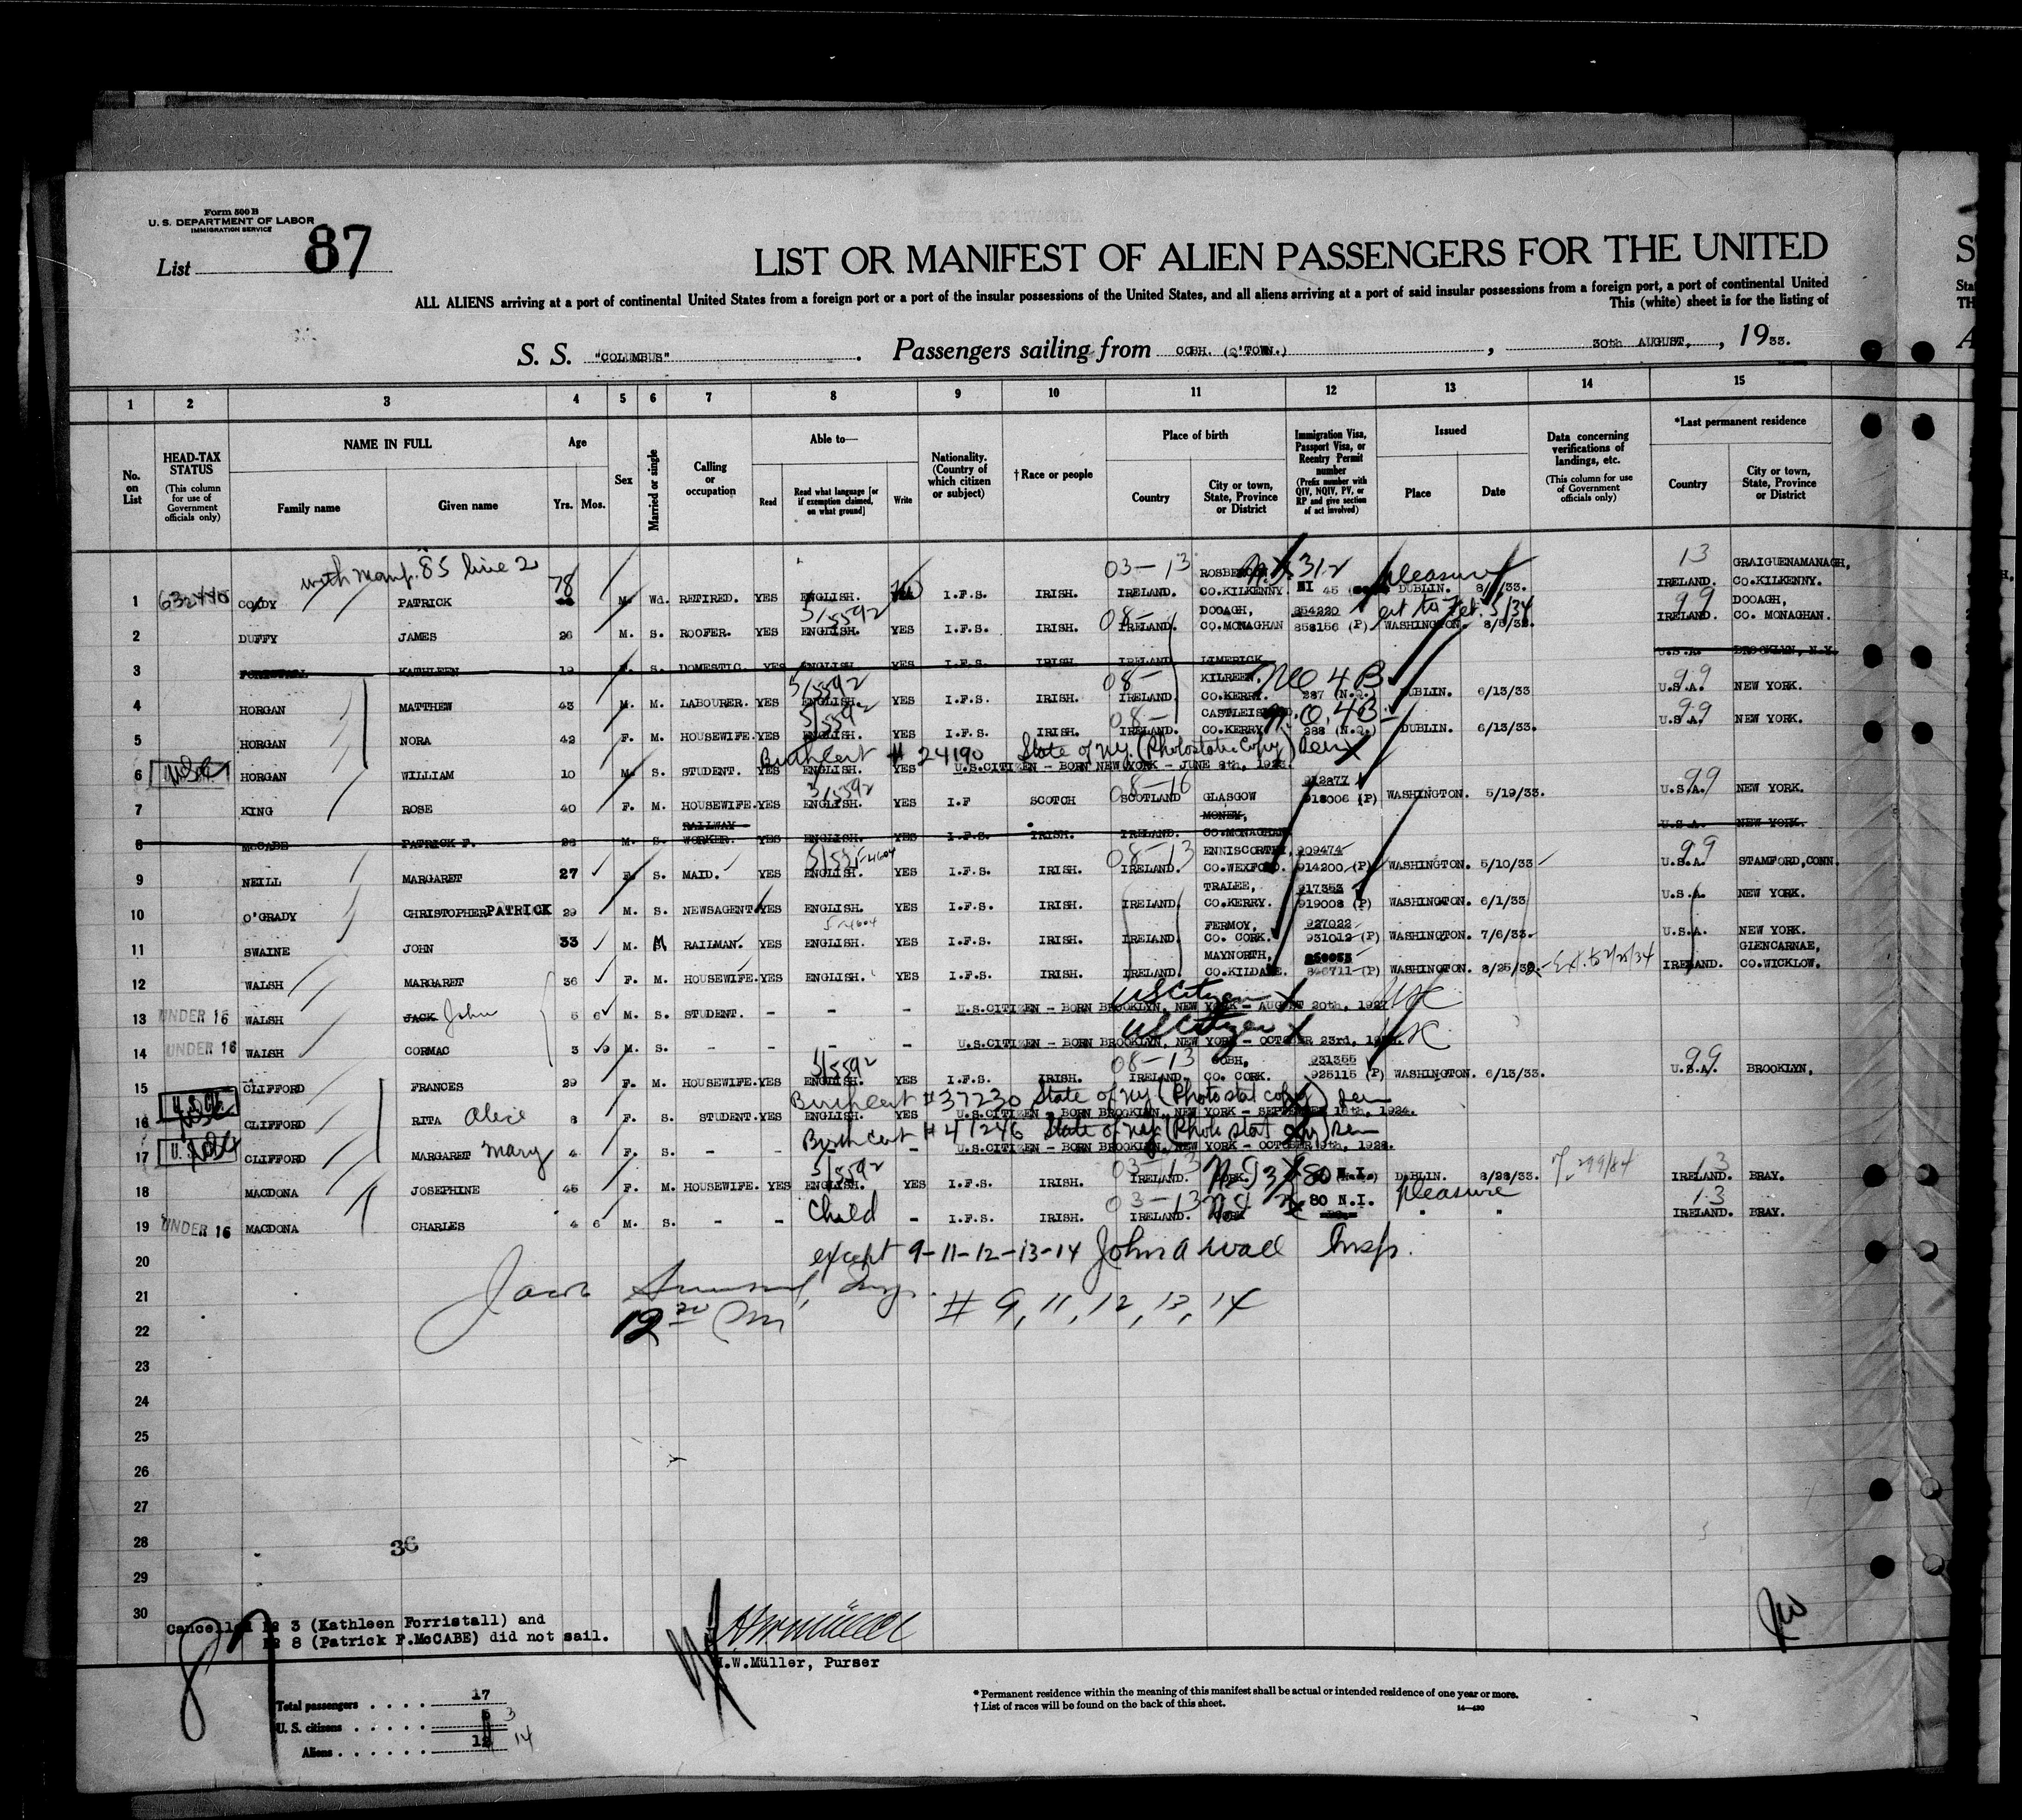 Form 500 B
U. S. DEPARTMENT OF LABOR
IMMIGRATION SERVICE
List 87
LIST OR MANIFEST OF ALIEN PASSENGERS FOR THE UNITED
ALL ALIENS arriving at a port of continental United States from a foreign port or a port of the insular possessions of the United States, and all aliens arriving at a port of said insular possessions from a foreign port, a port of continental United
This (white) sheet is for the listing of
S. S. "COLUMBUS". Passengers sailing from COBH. (Q'TOWN.), 30th AUGUST, 1933.
1 2 3 4 5 6 7 8 9 10 11 12 13 14 15
No. on List
HEAD-TAX STATUS (This column for use of Government officials only)
NAME IN FULL Family name Given name
Age Yrs. Mos.
Sex
Married or single
Calling or occupation
Able to— Read Read what language [or if exemption claimed, on what ground] Write
Nationality. (Country of which citizen or subject)
† Race or people
Place of birth Country City or town, State, Province or District
Immigration Visa, Passport Visa, or Reentry Permit number (Prefix number with QIV, NQIV, PV, or RP and give section of act involved)
Issued Place Date
Data concerning verifications of landings, etc. (This column for use of Government officials only)
*Last permanent residence Country City or town, State, Province or District
with Manf. 85 line 2 78 03-13 312 pleasure 13 GRAIGUENAMANAGH,
1 632440 CODY PATRICK M. Wd. RETIRED. YES ENGLISH. I.F.S. IRISH. IRELAND. CO.KILKENNY. NI 45 DUBLIN. IRELAND. CO.KILKENNY.
5/5592 08- DOOAGH, 854220 ext to Feb. 5/34 99 DOOAGH,
2 DUFFY JAMES 26 M. S. ROOFER. YES ENGLISH. YES I.F.S. IRISH. IRELAND. CO.MONAGHAN 858156 (P) WASHINGTON. IRELAND. CO. MONAGHAN.
3 FORRISTALL KATHLEEN 19 F. S. DOMESTIC. YES ENGLISH. YES I.F.S. IRISH. IRELAND LIMERICK. U.S.A. BROOKLYN, N.Y.
5/5592 08- KILREEN, NO 4B 99
4 HORGAN MATTHEW 43 M. M. LABOURER. YES ENGLISH. YES I.F.S. IRISH. IRELAND. CO.KERRY. 287 (N.Q.) DUBLIN. 6/13/33. U.S.A. NEW YORK.
5/5592 08- N.Q. 4B 99
5 HORGAN NORA 42 F. M. HOUSEWIFE. YES ENGLISH. YES I.F.S. IRISH. IRELAND. CO.KERRY. 288 (N.Q.) DUBLIN. 6/13/33. U.S.A. NEW YORK.
Birth Cert # 24190 State of N.Y. (Photostatic Copy)
6 HORGAN WILLIAM 10 M. S. STUDENT. YES ENGLISH. YES U.S.CITIZEN - BORN NEW YORK - JUNE 8th,
5/5592 08-16 912877 99
7 KING ROSE 40 F. M. HOUSEWIFE. YES ENGLISH. YES I.F SCOTCH SCOTLAND GLASGOW 918006 (P) WASHINGTON. 5/19/33. U.S.A. NEW YORK.
RAILWAY MONEY,
8 McCABE PATRICK P. 26 M. S. WORKER. YES ENGLISH. YES I.F.S. IRISH. IRELAND. CO.MONAGHAN U.S.A. NEW YORK.
08-13 ENNISCORTHY, 909474 99
9 NEILL MARGARET 27 F. S. MAID. YES ENGLISH. YES I.F.S. IRISH. IRELAND. CO.WEXFORD. 914200 (P) WASHINGTON. 5/10/33 U.S.A. STAMFORD, CONN.
TRALEE, 917353
10 O'GRADY CHRISTOPHER PATRICK 29 M. S. NEWSAGENT YES ENGLISH. YES I.F.S. IRISH. IRELAND. CO.KERRY. 919008 (P) WASHINGTON. 6/1/33 U.S.A. NEW YORK.
FERMOY, 927022
11 SWAINE JOHN 33 M. M RAILMAN. YES ENGLISH. YES I.F.S. IRISH. IRELAND CO. CORK. 931012 (P) WASHINGTON. 7/6/33. U.S.A. NEW YORK.
MAYNORTH, GLENCARNAE,
12 WALSH MARGARET 36 F. M. HOUSEWIFE. YES ENGLISH. YES I.F.S. IRISH. IRELAND. CO.KILDARE. 846711 (P) WASHINGTON. IRELAND. CO.WICKLOW.
US Citizen USC
13 UNDER 16 WALSH JACK John 6 M. S. STUDENT. - - - U.S.CITIZEN - BORN BROOKLYN, NEW YORK - AUGUST 20th, 1927
US Citizen USC
14 UNDER 16 WALSH CORMAC 3 9 M. S. - - - - U.S.CITIZEN - BORN BROOKLYN, NEW YORK - OCTOBER 23rd,
5/5592 08-13 COBH, 931355 99
15 CLIFFORD FRANCES 29 F. M. HOUSEWIFE. YES ENGLISH. YES I.F.S. IRISH. IRELAND. CO. CORK. 925115 (P) WASHINGTON. 6/13/33. U.S.A. BROOKLYN,
Birth Cert # 37230 State of NY (Photostat copy)
16 CLIFFORD RITA Alice 8 F. S. STUDENT. YES ENGLISH. YES U.S.CITIZEN - BORN BROOKLYN, NEW YORK - SEPTEMBER 1924.
Birth Cert # 41246 State of NY (Photostat copy)
17 CLIFFORD MARGARET Mary 4 F. S. - - - - U.S.CITIZEN - BORN BROOKLYN, NEW YORK - OCTOBER
5/5592 03-13 13
18 MACDONA JOSEPHINE 45 F. M. HOUSEWIFE. YES ENGLISH. YES I.F.S. IRISH. IRELAND. 80 N.I. DUBLIN. 8/28/33. 299/84 IRELAND. BRAY.
Child 03-13 80 N.I. pleasure 13
19 UNDER 16 MACDONA CHARLES 4 6 M. S. - - - I.F.S. IRISH. IRELAND. " " IRELAND. BRAY.
20 except 9-11-12-13-14 John A Wall Insp.
21 # 9, 11, 12, 13, 14
22
23
24
25
26
27
28 36
29
30
Cancelled No 3 (Kathleen Forristall) and
No 8 (Patrick P.McCABE) did not sail.
87
H.W.Müller, Purser
Total passengers . . . . 17
U. S. citizens . . . . . 3
Aliens . . . . . . 14
* Permanent residence within the meaning of this manifest shall be actual or intended residence of one year or more.
† List of races will be found on the back of this sheet.
14—430